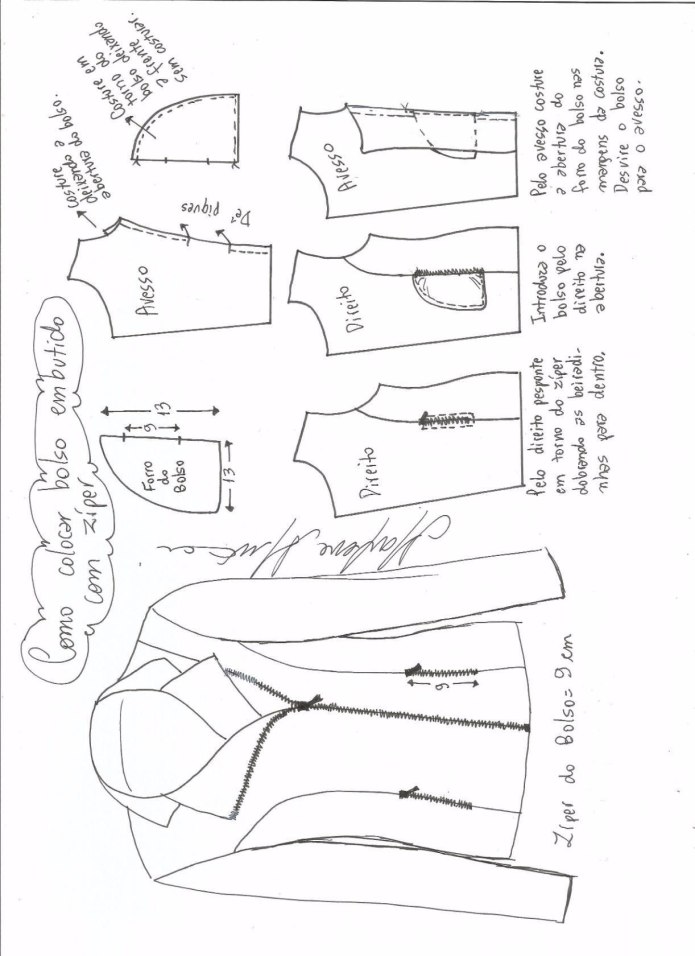 Como colocar bolso embutido
com zíper
Forro
do
Bolso
9
13
13
Avesso
Costure
deixando a
abertura do bolso.
De²
Piques
Costure em
torno do
bolso deixando
a frente
sem costurar.
Direito
Pelo direito pesponte
em torno do zíper
dobrando as beiradi-
nhas para dentro.
Direito
Introduza o
bolso pelo
direito na
abertura.
Avesso
Pelo avesso costure
a abertura do
forro do bolso nas
margens da costura.
Desvire o bolso
para o avesso.
9
Zíper do Bolso = 9 cm